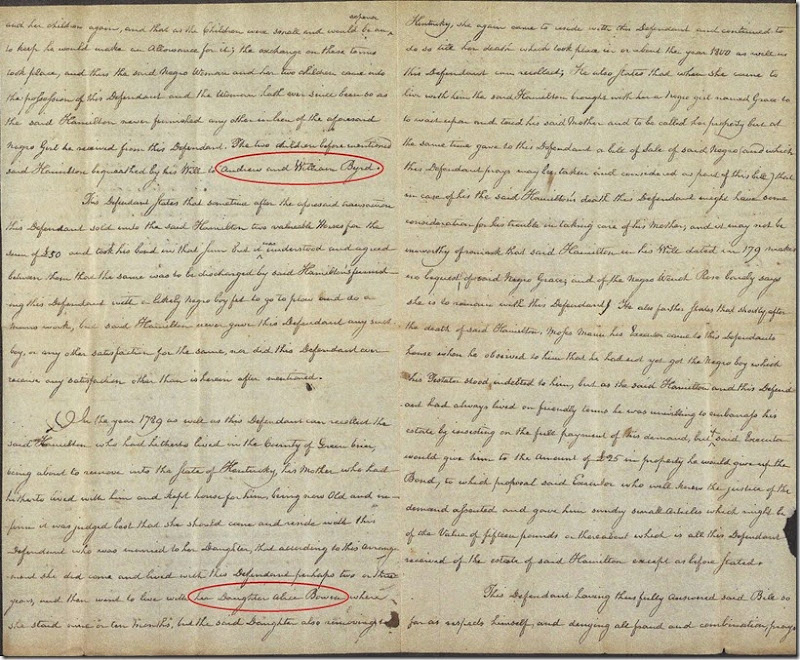 and her children again, and that as the Children were small and would be an
expence
to keep he would make an Allowance for it; the exchange on these terms
took place, and then the said Negro Woman and her two children came into
the possession of this Defendant and the Woman hath ever since been so as
the said Hamilton never furnished any other in lieu of the aforesaid
Negro Girl he received from this Defendant. The two children before mentioned
said Hamilton bequeathed by his Will to Andrew and William Byrd.
This Defendant states that sometime after the aforesaid transaction
this Defendant sold unto the said Hamilton two valuable Horses for the
sum of £50 and took his bond in that sum but it was understood and agreed
between them that the same was to be discharged by said Hamilton's furnish-
ing this Defendant with a likely Negro boy fit to go to plow and do a
mans work, but said Hamilton never gave this Defendant any such
boy, or any other satisfaction for the same, nor did this Defendant ever
receive any satisfaction other than is herein after mentioned.
In the year 1789 as well as this Defendant can recollect the
said Hamilton who had hitherto lived in the County of Green brier,
being about to remove into the State of Kentucky, his Mother who had
hitherto lived with him and kept house for him, being now Old and in-
firm it was judged best that she should come and reside with this
Defendant who was married to her Daughter, that according to this Arrange-
ment she did come and lived with this Defendant perhaps two or three
years, and then went to live with her Daughter Alice Bowen where
she staid nine or ten Months, but the said Daughter also removing to
Kentucky, she again came to reside with this Defendant and continued to
do so till her death which took place in or about the year 1800 as well as
this Defendant can recollect; He also states that when she came to
live with him the said Hamilton brought with her a Negro girl named Grace to
to wait upon and tend his said Mother and to be called her property but at
the same time gave to this Defendant a bill of Sale of said Negro (and which
this Defendant prays may be taken and considered as part of this bill) that
in case of his the said Hamilton's death this Defendant might have some
consideration for his trouble in taking care of his Mother, and it may not be
unworthy of remark that said Hamilton in his Will dated in 179 makes
no bequest of said Negro Grace, and of the Negro Wench Rose barely says
she is to remain with this Defendant. He also further States that shortly after
the death of said Hamilton, Moses Mann his Executor came to this Defendants
house when he observed to him that he had not yet got the Negro boy which
his Testator stood indebted to him, but as the said Hamilton and this Defend
ant had always lived on friendly terms he was unwilling to embarrass his
estate by insisting on the full payment of this demand, but if said Executor
would give him to the Amount of £25 in property he would give up the
Bond, to which proposal said Executor who well knew the justice of the
demand assented and gave him sundry small Articles which might be
of the Value of fifteen pounds or thereabout which is all this Defendant
received of the estate of said Hamilton except as before stated.
This Defendant having thus fully answered said Bill so
far as respects himself, and denying all fraud and combination, prays